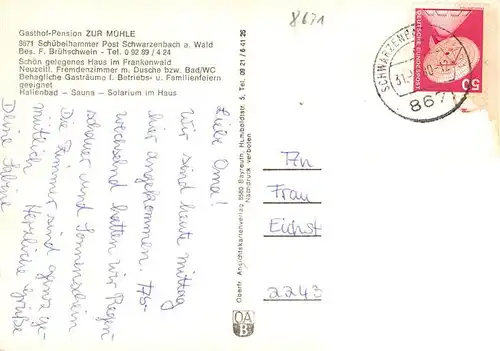 8671
Gasthof-Pension ZUR MÜHLE
8671 Schübelhammer Post Schwarzenbach a. Wald
Bes. F. Brühschwein - Tel. 0 92 89 / 4 24
Schön gelegenes Haus im Frankenwald
Neuzeitl. Fremdenzimmer m. Dusche bzw. Bad/WC
Behagliche Gasträume f. Betriebs- u. Familienfeiern
geeignet
Hallenbad - Sauna - Solarium im Haus
Liebe Oma!
Wir sind heute mittag
hier angekommen. Ab-
wechselnd hatten wir Regen-
schauer und Sonnenschein
Die Zimmer sind ganz ge-
mütlich Herzliche Grüße
Deine Sabine
Oberfr. Ansichtskartenverlag 8580 Bayreuth, Humboldtstr. 5, Tel. 09 21 / 6 41 26
Nachdruck verboten
OA
B
DEUTSCHE BUNDESPOST
50
SCHWARZENBA
8671
An
Frau
Eichst
2243